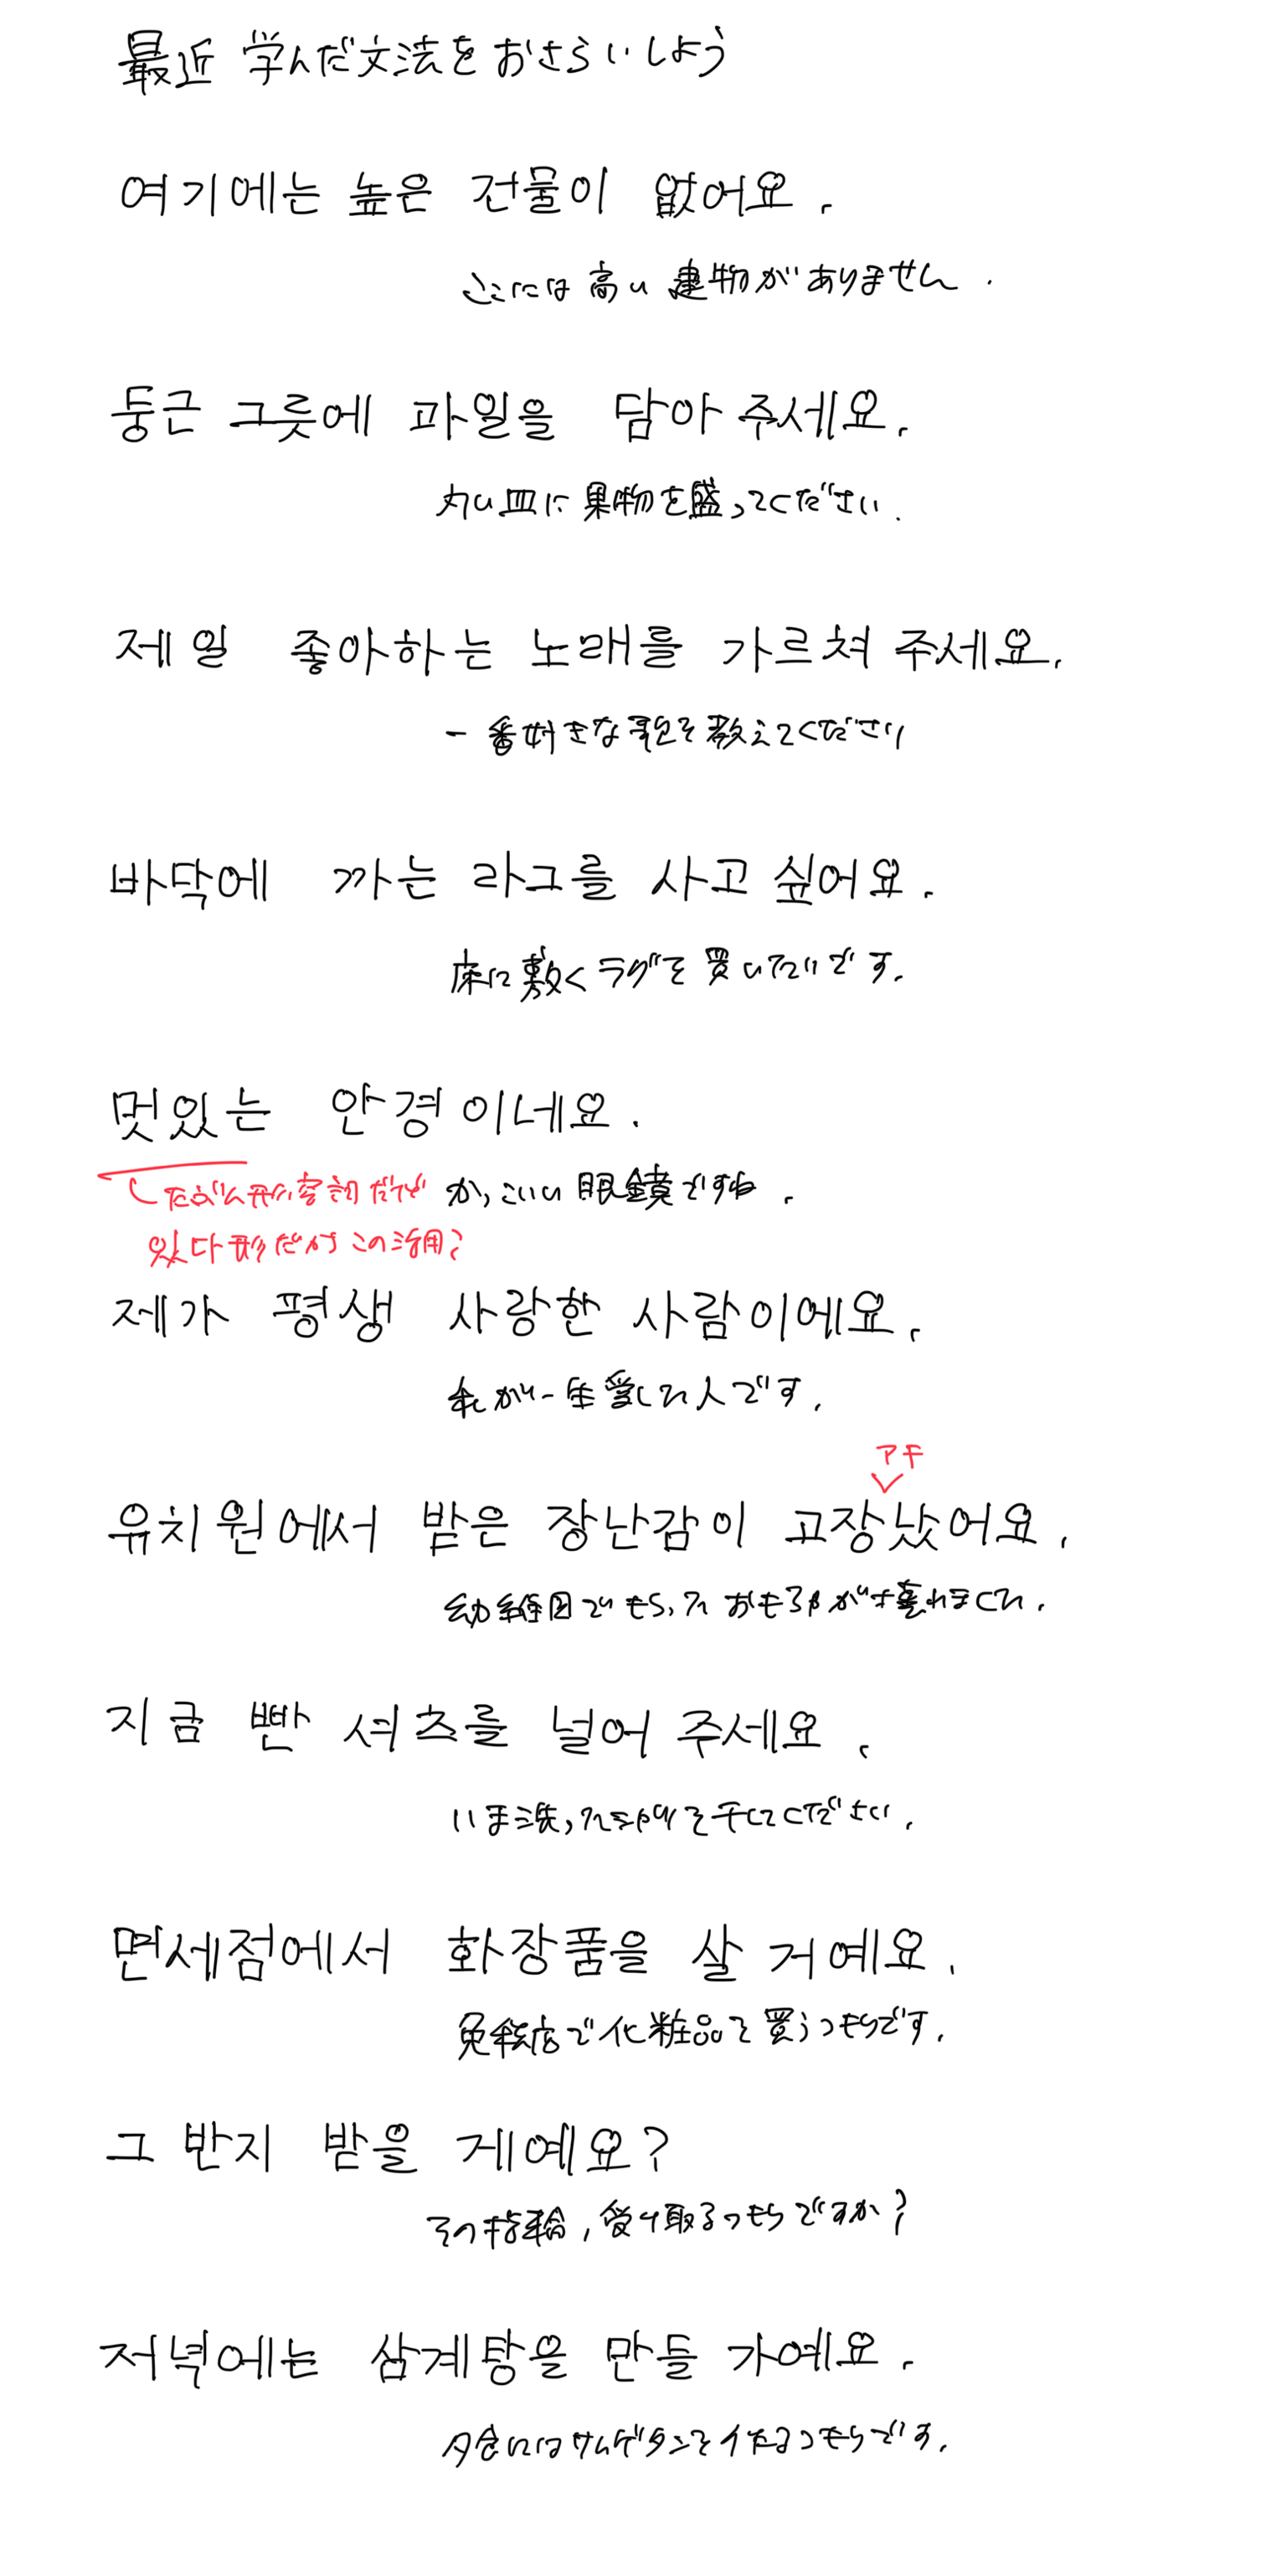 最近 学んだ文法をおさらいしよう
여기에는 높은 건물이 없어요.
ここには高い建物がありません.
둥근 그릇에 과일을 담아 주세요.
丸い皿に果物を盛ってください.
제일 좋아하는 노래를 가르쳐 주세요.
一番好きな歌を教えてください
바닥에 까는 라그를 사고 싶어요.
床に敷くラグを買いたいです.
멋있는 안경이네요.
かっこいい眼鏡ですね.
たぶん形容詞だけど
있다形だからこの活用?
제가 평생 사랑한 사람이에요.
私が一生愛した人です.
アキ
유치원에서 받은 장난감이 고장났어요.
幼稚園でもらったおもちゃが壊れました.
지금 빤 셔츠를 널어 주세요.
いま洗ったシャツを干してください.
면세점에서 화장품을 살 거예요.
免税店で化粧品を買うつもりです.
그 반지 받을 게예요?
その指輪,受け取るつもりですか?
저녁에는 삼계탕을 만들 가예요.
夕食にはサムゲタンを作るつもりです.